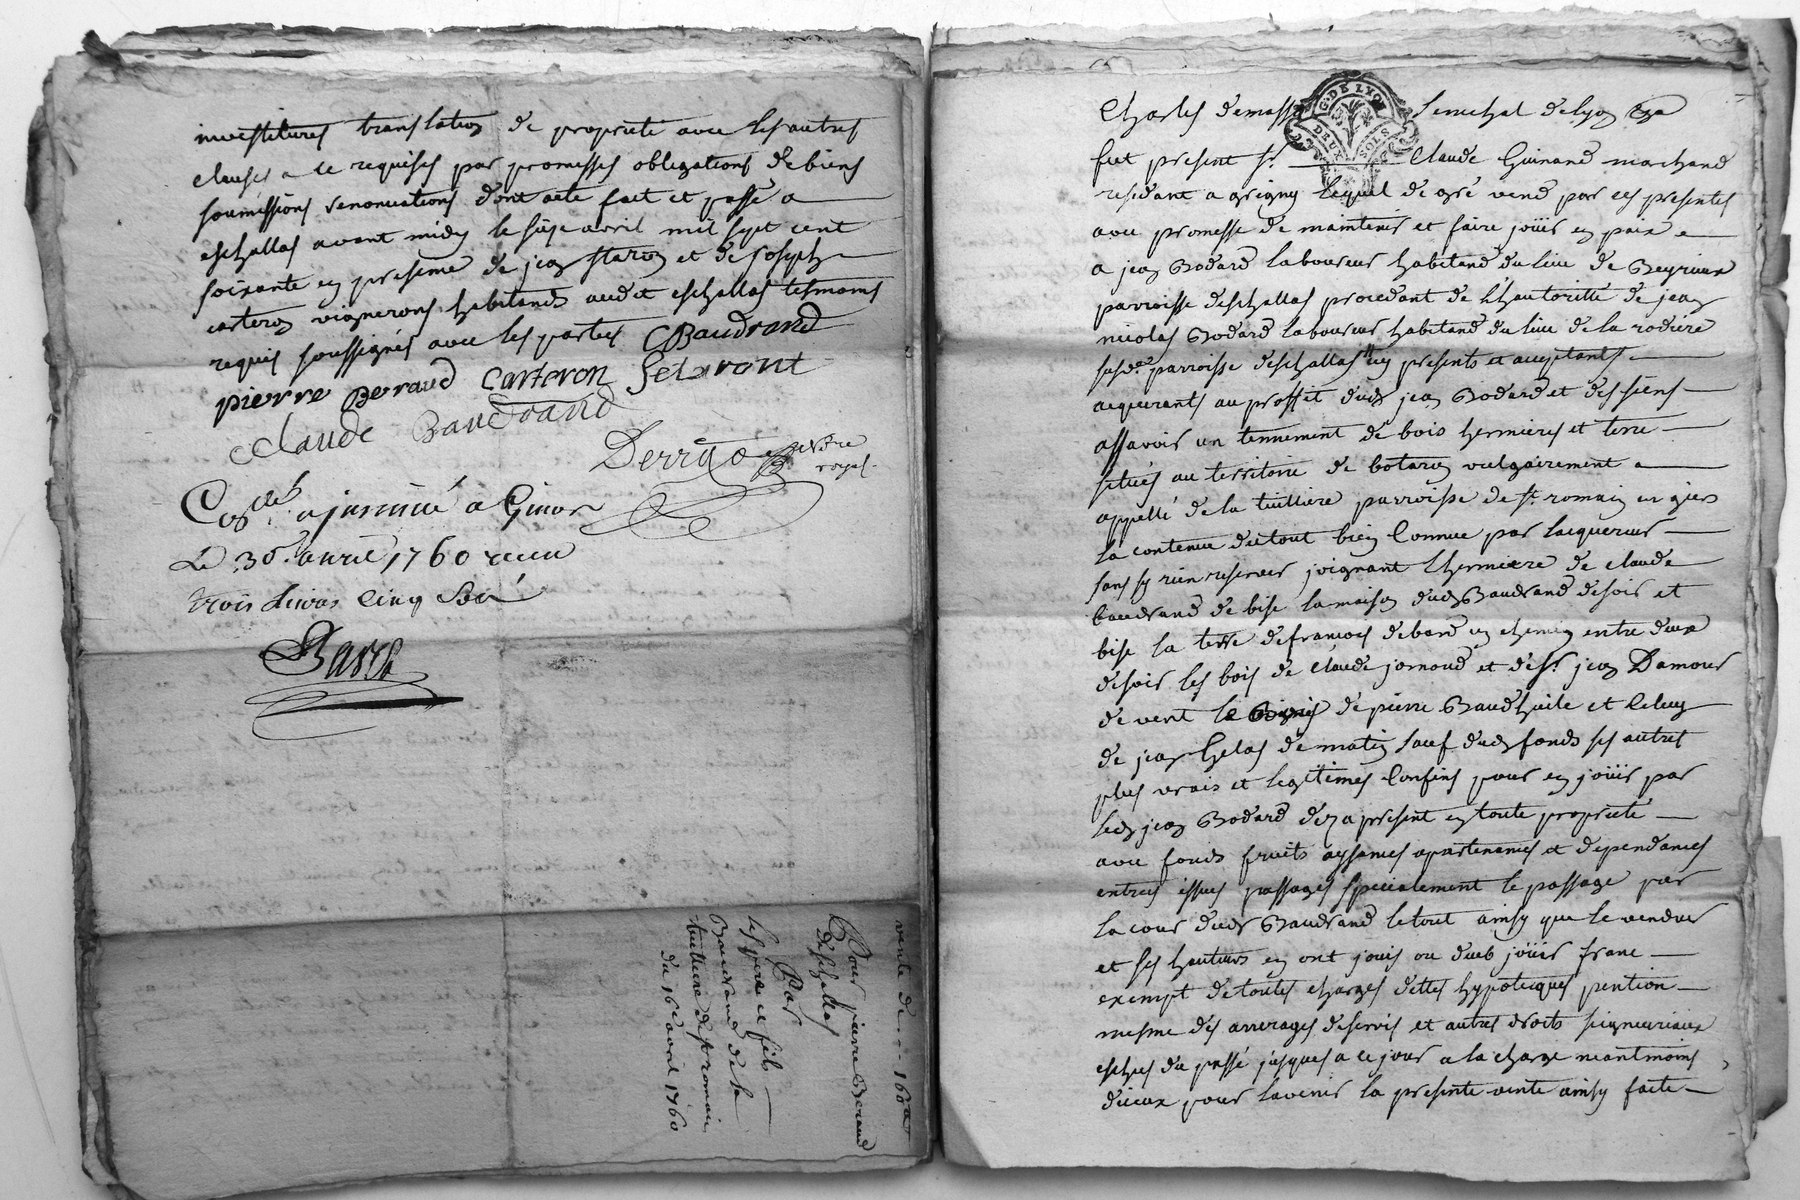 investitures translation de propriete avec les autres
clauses a ce requises par promesses obligations de biens
soumissions renonciations dont acte fait et passé a
eschallas avant midy le seize avril mil sept cent
soixante en presence de jean fleron et de joseph
carteron vignerons habitands audit eschallas tesmoins
requis soussignés avec les parties CBaudrand
pierre Beraud Carteron
claude Baudrand
Nre
royal
Coll. a justiciné a Givors
Le 30. avril 1760 recu
trois livres cinq
vente de --- 160
Pour pierre Beraud
deschallas
Par
les pere et fils
Baudrand de la
tuilliere de st romain
du 16 avril 1760
Charles demasso senechal de lyon
G. DE LYON
DEUX SOLS
fut present sr. Claude Guinand marchand
residant a grigny lequel de gré vend par ces presentes
avec promesse de maintenir et faire joüir en paix a
a jean Bodard laboureur habitand du lieu de Beyrieux
parroisse deschallas procedant de l'hautoritté de jean
nicolas Bodard laboureur habitand du lieu de la rodiere
susd. parroisse deschallas icy presents et acceptants
acquerants au proffit dudt jean Bodard et des siens
assavoir un tennement de bois hermieres et terre
situés au territoire de botaron vulgairement
appellé de la tuilliere parroisse de st. romain en giers
la contenue du tout bien Connue par lacquereur
sans sy rien reserver joignant lhermiere de claude
baudrand de bise la maison dudt Baudrand de soir et
bise la terre de francois debard un chemin entre deux
de soir les bois de claude jornoud et de sr. jean Damour
de vent le de pierre Baudhuile et celuy
de jean gelas de matin sauf dudt fonds ses autres
plus vrais et legitimes Confins pour en joüir par
ledt jean Bodard dez a present en toute propriete
avec fonds fruits aysances apartenances et dependances
entrees issues passages specialement le passage par
la cour dudt Baudrand le tout ainsy que le vendeur
et ses hauteurs en ont joüis ou deub joüir franc
exempt de toutes charges dettes hypoteques pention
mesme des arrerages de servis et autres droits seigneuriaux
eschus du passé jusques a ce jour a la charge neantmoins
diceux pour lavenir la presente vente ainsy faite